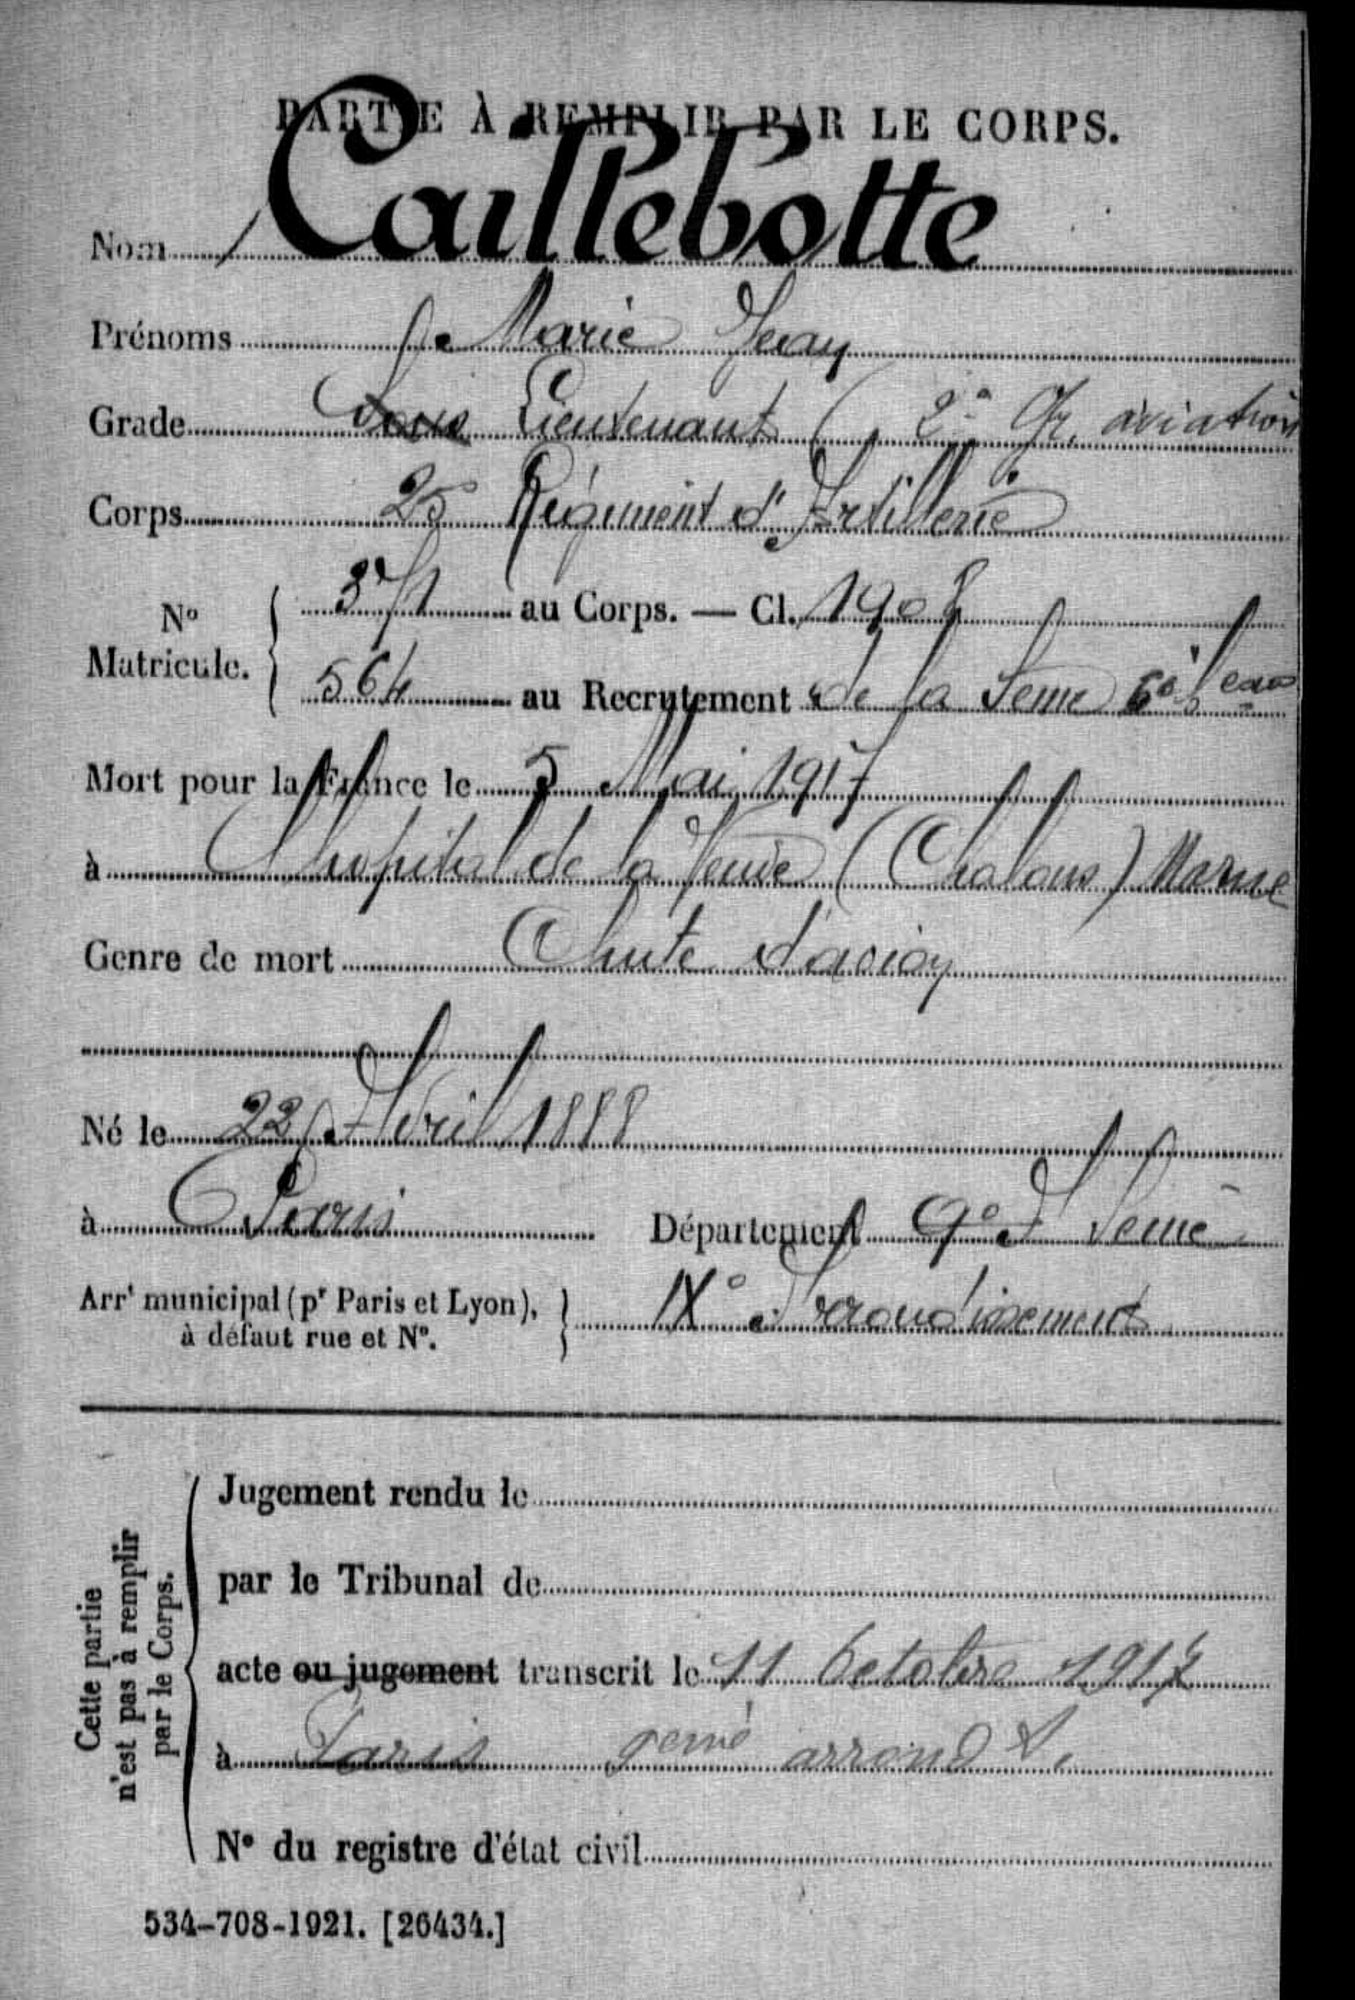 PARTIE À REMPLIR PAR LE CORPS.
Nom Caillebotte
Prénoms Marie Jean
Grade Sous Lieutenant (2e Gr. aviation
Corps 25 Régiment d'Artillerie
No Matricule. 371 au Corps. — Cl. 1908
564 au Recrutement de la Seine 6e Beau
Mort pour la France le 5 Mai 1917
à l'hopital de la Veuve (Chalons) Marne
Genre de mort Chute d'avion
Né le 22 Avril 1888
à Paris Département 9e A Seine
Arrt municipal (pr Paris et Lyon), à défaut rue et No. IXe Arrondissement
Cette partie n'est pas à remplir par le Corps.
Jugement rendu le
par le Tribunal de
acte ou jugement transcrit le 11 Octobre 1917
à Paris 9eme arrondt.
No du registre d'état civil
534-708-1921. [26434.]